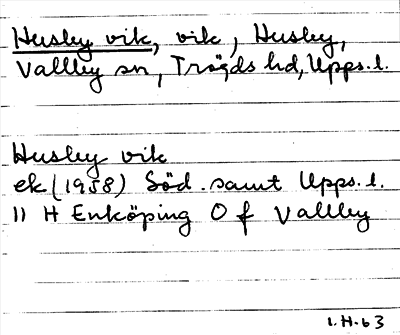 Husby vik, vik, Husby,
Vallby sn, Trögds hd, Upps. l.
Husby vik
ek (1958) Söd. samt Upps. l.
11 H Enköping 0 f Vallby
I. H. 63